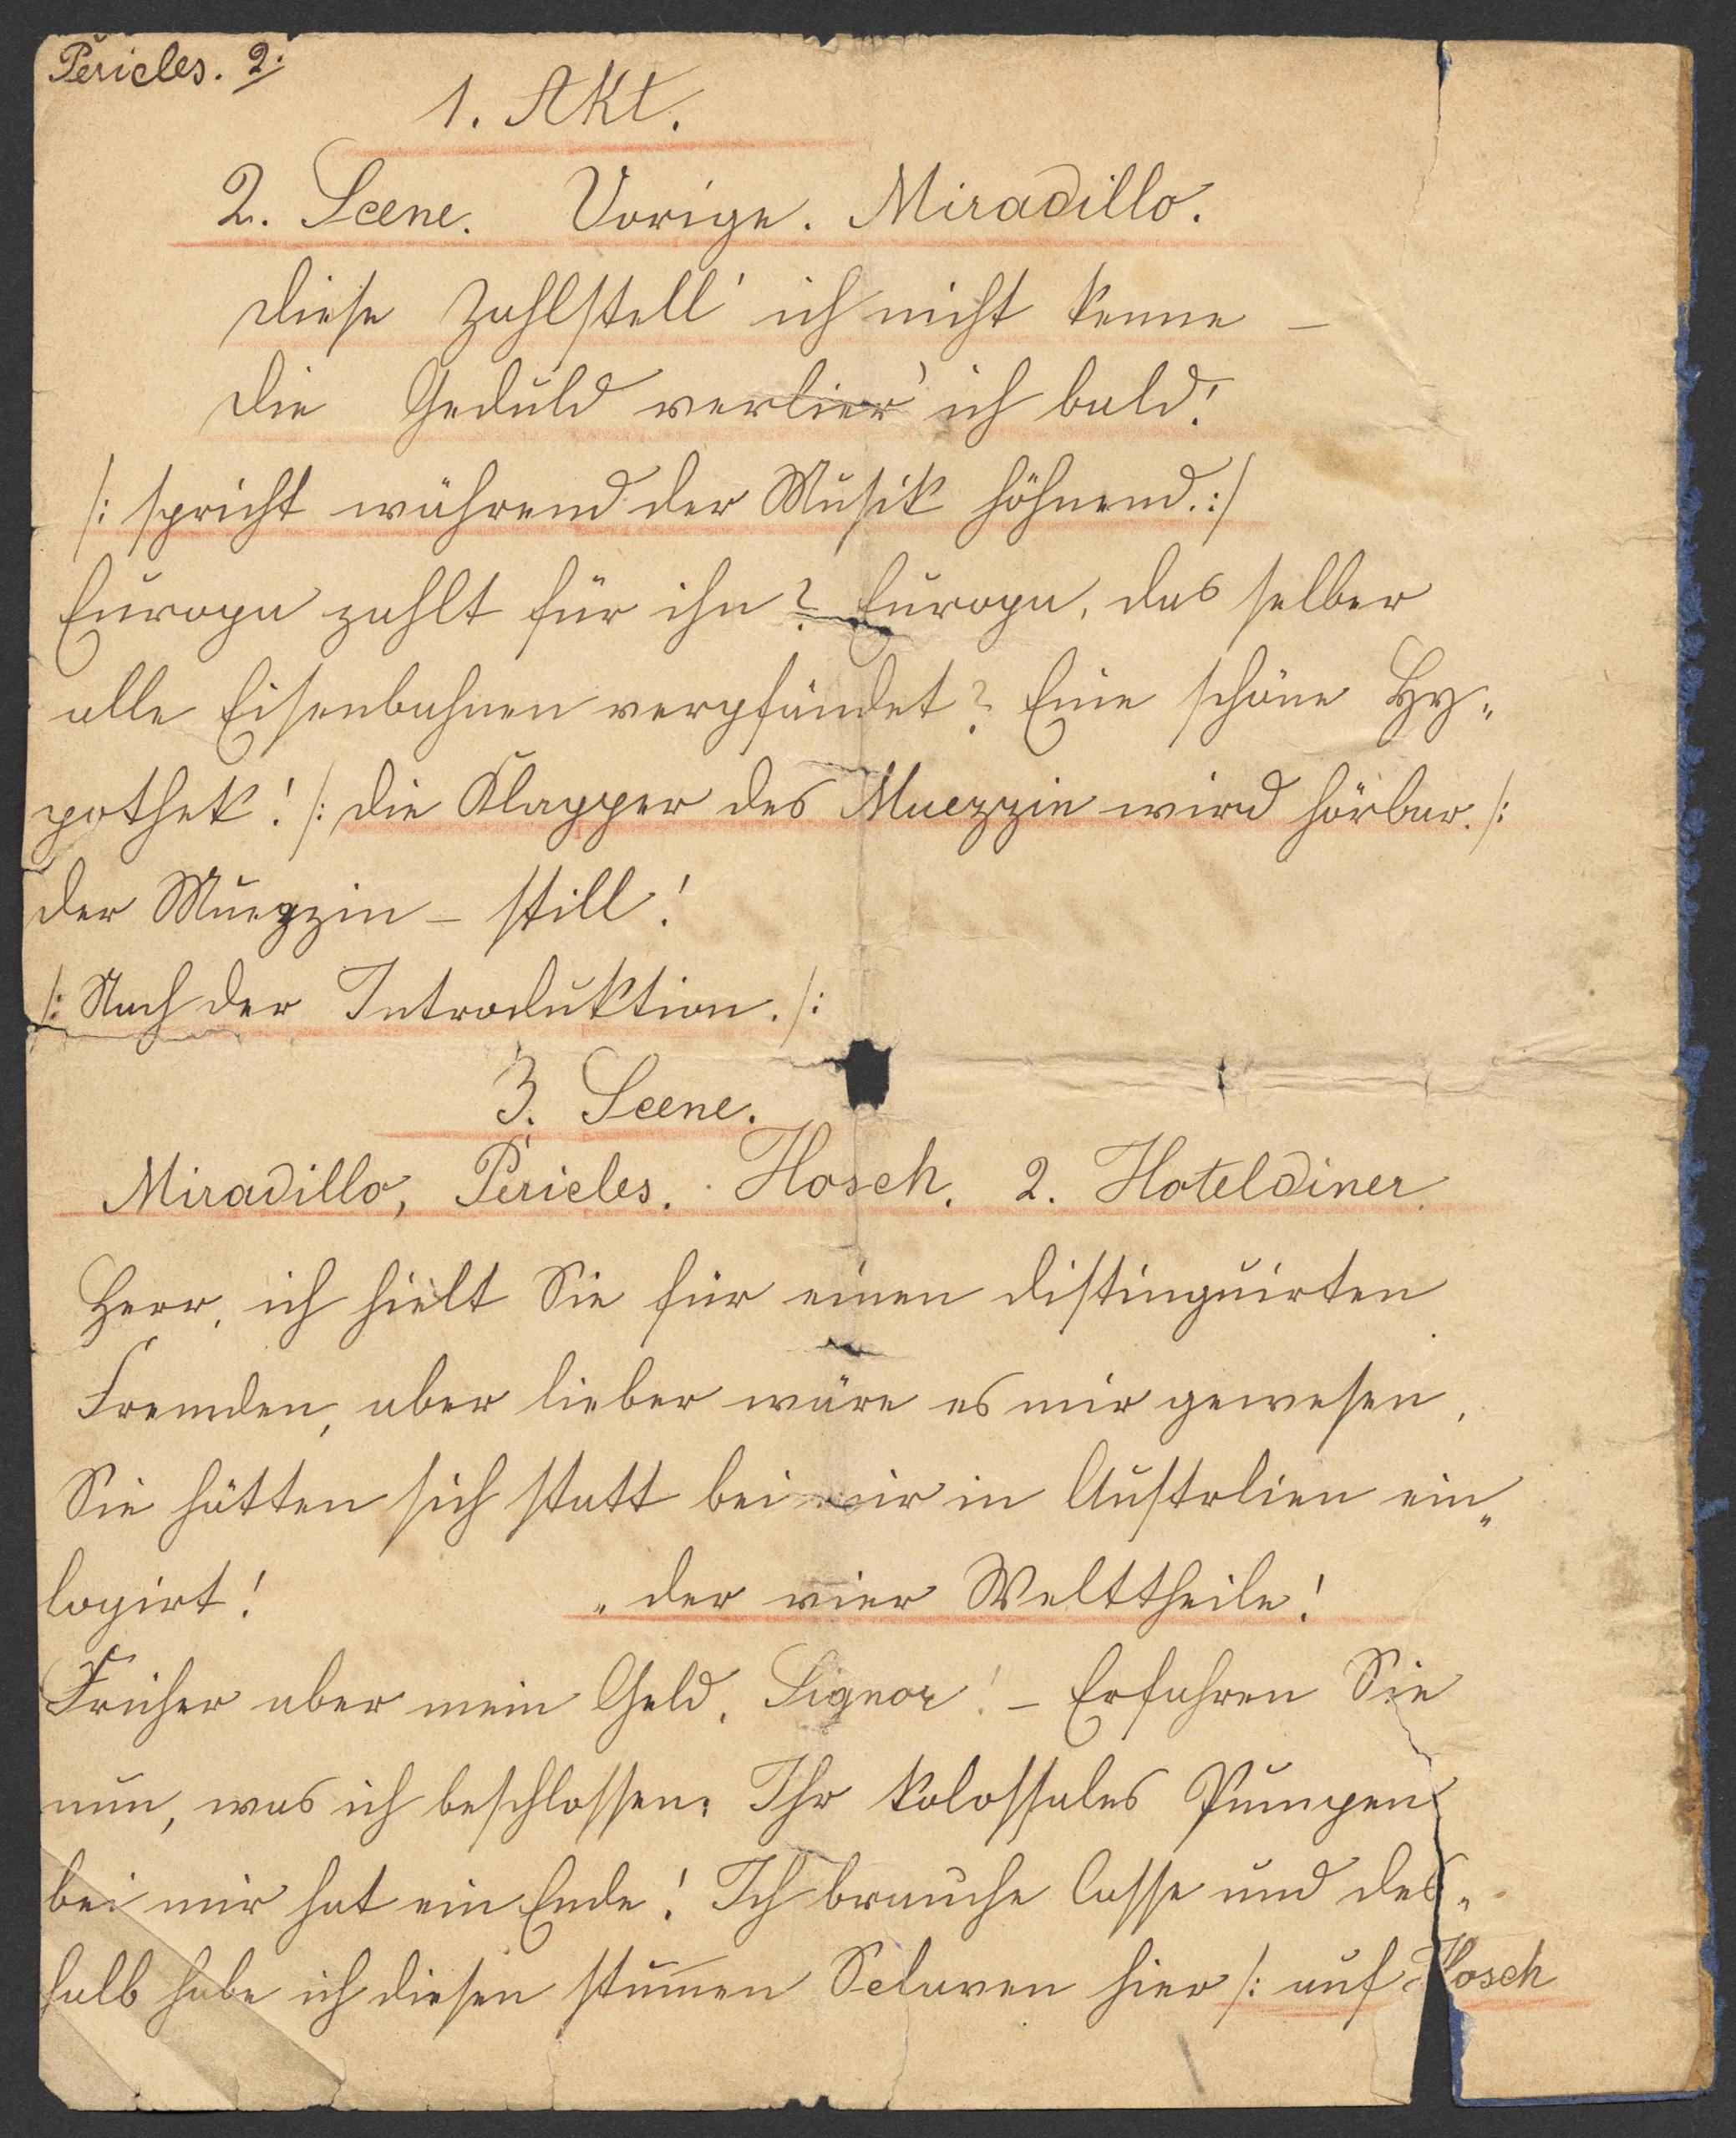 Pericles. 2.
1. Akt.
2. Scene. Vorige. Miradillo.
diese Zahlstell' ich nicht kenne –
die Geduld verlier' ich bald!
/: spricht während der Musik höhnend. :/
Europa zahlt für ihn? Europa, das selber
alle Eisenbahnen verpfändet? Eine schöne Hy„
pothek! /: die Klapper des Muezzin wird hörbar. /:
der Muezzin – still!
/: Nach der Introduktion. /:
3. Scene.
Miradillo, Pericles. Hosch. 2. Hoteldiner
Herr, ich hielt Sie für einen distinguirten
Fremden, aber lieber wäre es mir gewesen,
Sie hätten sich statt bei mir in Austrlien ein„
logirt! „ der vier Welttheile!
Früher aber mein Geld, Signor! – Erfahren Sie
nun, was ich beschlossen: Ihr kolossales Pumpen
bei mir hat ein Ende! Ich brauche Casse und des„
halb habe ich diesen stum̅en Sclaven hier /: auf Hosch